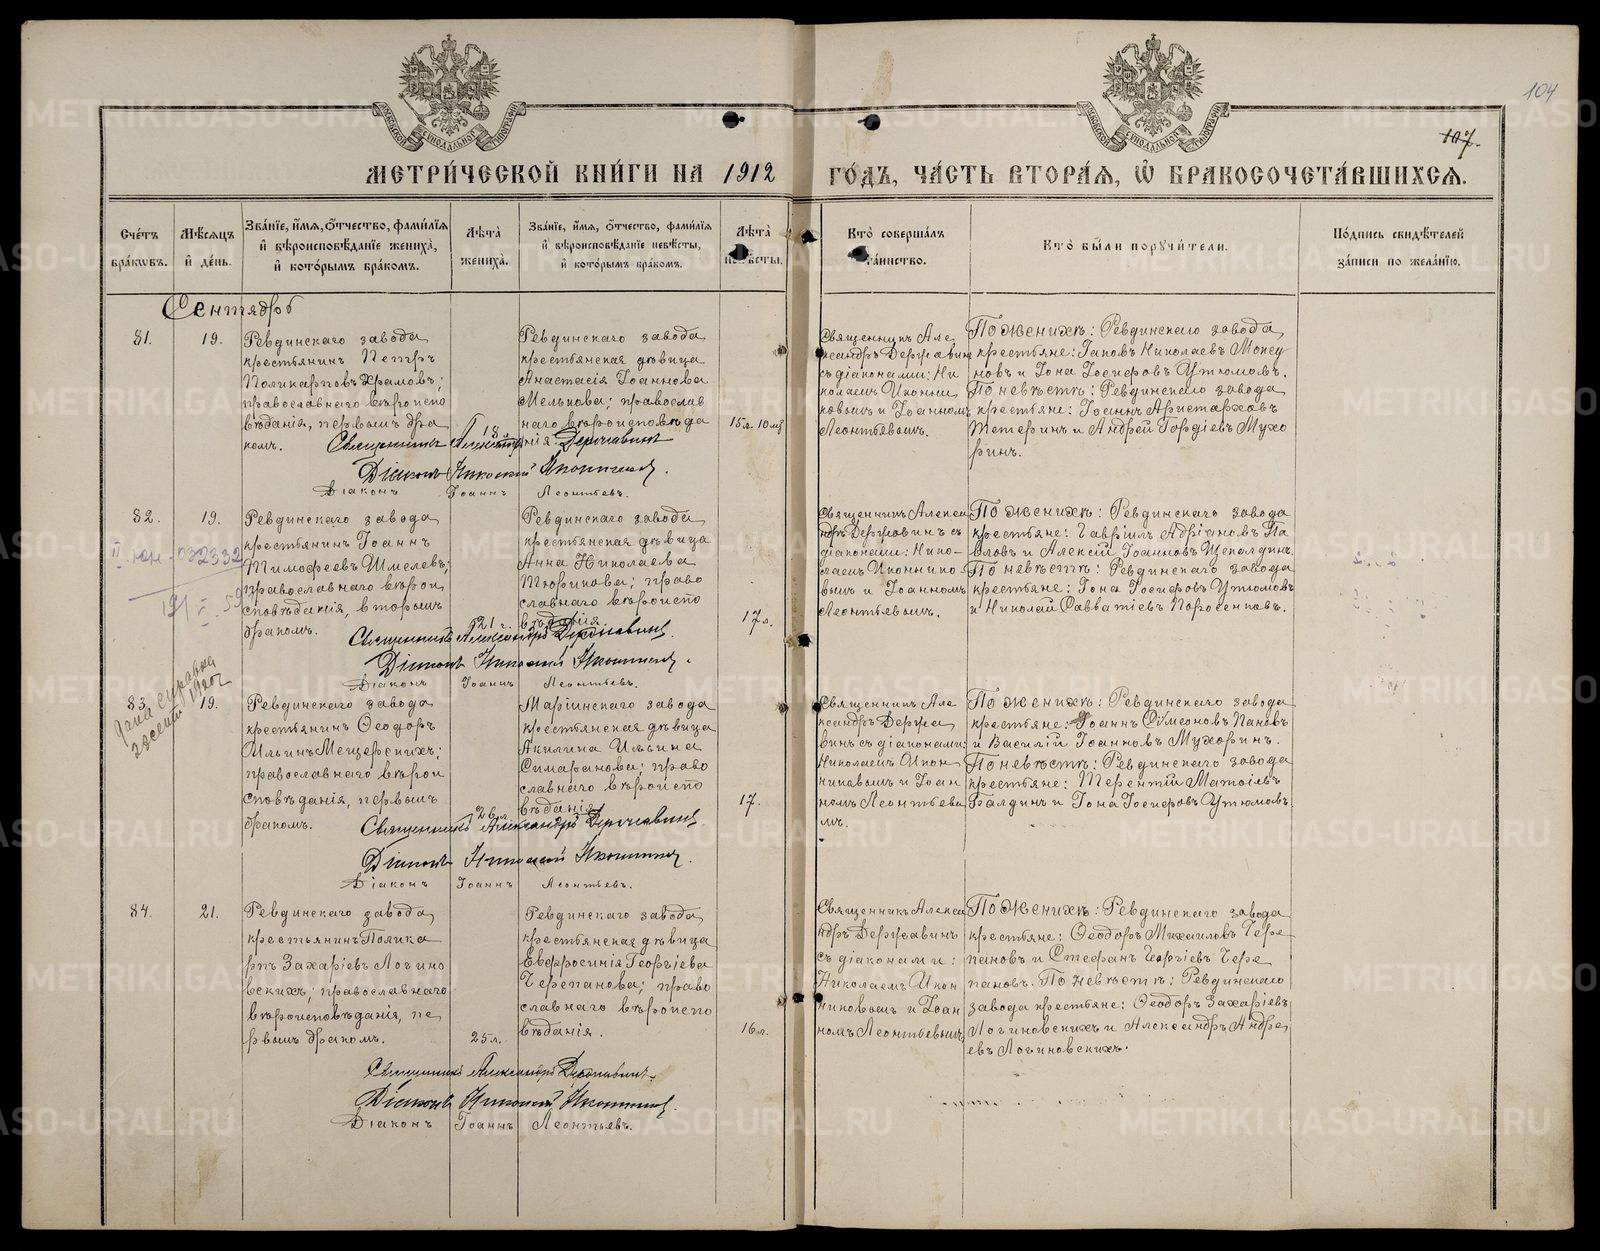 104
107.
МЕТРИ́ЧЕСКОЙ КНИ́ГИ НА 1912 ГО́ДЪ, ЧА́СТЬ ВТОРА́Я, Ѡ БРАКОСОЧЕТА́ВШИХСЯ.
Сче́тъ бра́кѡвъ.
Мѣ́сяцъ и҆ де́нь.
Зва́нїе, и҆́мя, ѻ҆́тчество, фами́лїя и҆ вѣроисповѣ́данїе жениха̀, и҆ кото́рымъ бра́комъ.
Лѣ́та жениха̀.
Зва́нїе, и҆́мя, ѻ҆́тчество, фами́лїя и҆ вѣроисповѣ́данїе невѣ́сты, и҆ кото́рымъ бра́комъ.
Лѣ́та невѣ́сты.
Кто̀ соверша́лъ та́инство.
Кто̀ бы́ли порꙋчи́тели.
По́дпись свидѣ́телей за́писи по жела́нїю.
Сентябрь
81.
19.
Ревдинскаго завода
крестьянинъ Петръ
Поликарповъ Храмовъ;
православнаго вѣроиспо
вѣданія, первымъ бра
комъ.
18
Ревдинскаго завода
крестьянская дѣвица
Анастасія Іоаннова
Мелькова; православ
наго вѣроисповѣда
нія
15 л. 10 мѣ
Священникъ Але
ксандръ Державин
съ діаконами: Ни
колаемъ Иконни
ковымъ и Іоанномъ
Леонтьевымъ.
По женихѣ: Ревдинскаго завода
крестьяне: Іаковъ Николаевъ Мокеу
новъ и Іона Іосифовъ Утюмовъ.
По невѣстѣ: Ревдинскаго завода
крестьяне: Іоаннъ Аристарховъ
Тетеринъ и Андрей Гордіевъ Мухо
ринъ.
Священникъ Александръ Державинъ
Діаконъ Николай Иконниковъ.
Діаконъ Іоаннъ Леонтьевъ.
82.
19.
II-юн-032332
191 I 59
Ревдинскаго завода
крестьянинъ Іоаннъ
Тимофеевъ Шмелевъ;
православнаго вѣрои
сповѣданія, вторымъ
бракомъ.
21 г.
Ревдинскаго завода
крестьянская дѣвица
Анна Николаева
Тюрикова; право
славнаго вѣроиспо
вѣданія.
17 л.
Священникъ Алекса
ндръ Державинъ съ
діаконами: Нико-
лаемъ Иконнико
вымъ и Іоанномъ
Леонтьевымъ.
По женихѣ: Ревдинскаго завода
крестьяне: Гавріилъ Адріановъ Па
вловъ и Алексій Іоанновъ Щекалдинъ.
По невѣстѣ: Ревдинскаго завода
крестьяне: Іона Іосифовъ Утюмовъ
и Николай Савватіевъ Поросенковъ.
Священникъ Александръ Державинъ.
Діаконъ Николай Иконниковъ.
Діаконъ Іоаннъ Леонтьевъ.
Дана справка
1920 г
83.
19.
Ревдинскаго завода
крестьянинъ Ѳеодоръ
Ильинъ Мещерскихъ;
православнаго вѣрои
сповѣданія, первымъ
бракомъ.
26 л.
Маріинскаго завода
крестьянская дѣвица
Акилина Ильина
Симаранова; право
славнаго вѣроиспо
вѣданія
17.
Священникъ Але
ксандръ Держа
винъ съ діаконами:
Николаемъ Икон
никовымъ и Іоан
номъ Леонтьевы
мъ.
По женихѣ: Ревдинскаго завода
крестьяне: Іоаннъ Сѵмеоновъ Пановъ
и Василій Іоанновъ Мухоринъ.
По невѣстѣ: Ревдинскаго завода
крестьяне: Терентій Матөіевъ
Балдинъ и Іона Іосифовъ Утюмовъ.
Священникъ Александръ Державинъ.
Діаконъ Николай Иконниковъ.
Діаконъ Іоаннъ Леонтьевъ.
84.
21.
Ревдинскаго завода
крестьянинъ Полика
рпъ Захаріевъ Логино
вскихъ; православнаго
вѣроисповѣданія, пе
рвымъ бракомъ.
25 л.
Ревдинскаго завода
крестьянская дѣвица
Евфросинія Георгіева
Черепанова; право
славнаго вѣроиспо
вѣданія.
16 л.
Священникъ Алекса
ндръ Державинъ
съ діаконами:
Николаемъ Икон
никовымъ и Іоан
номъ Леонтьевымъ
По женихѣ: Ревдинскаго завода
крестьяне: Ѳеодоръ Михаиловъ Чере
пановъ и Стефанъ Георгіевъ Чере
пановъ. По невѣстѣ: Ревдинскаго
завода крестьяне: Ѳеодоръ Захаріевъ
Логиновскихъ и Александръ Андре
евъ Логиновскихъ.
Священникъ Александръ Державинъ.
Діаконъ Николай Иконниковъ.
Діаконъ Іоаннъ Леонтьевъ.
METRIKI.GASO-URAL.RU